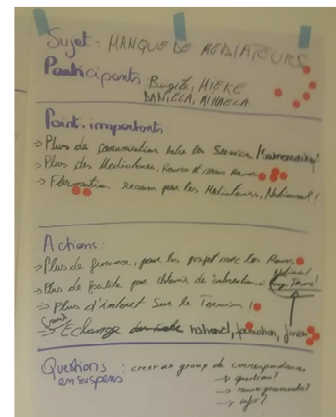 Sujet : MANQUE DE MEDIATEURS
Participants : Birgitt, MIEKE
DANIELA, MIHAELA
Points importants :
-> Plus de comunication entre les Services /
-> Plus des Mediateurs, Roma et non Roma
-> Formation reconu par les Mediateurs, National !
Actions :
-> Plus de finance, pour les projet avec les Roms
-> Plus de facilité pour obtenir de subvention
-> Plus d'interet sur le Terrain !
-> Echange national, formation,
Questions : creer un group de correspondance
en suspens
-> question?
-> info?